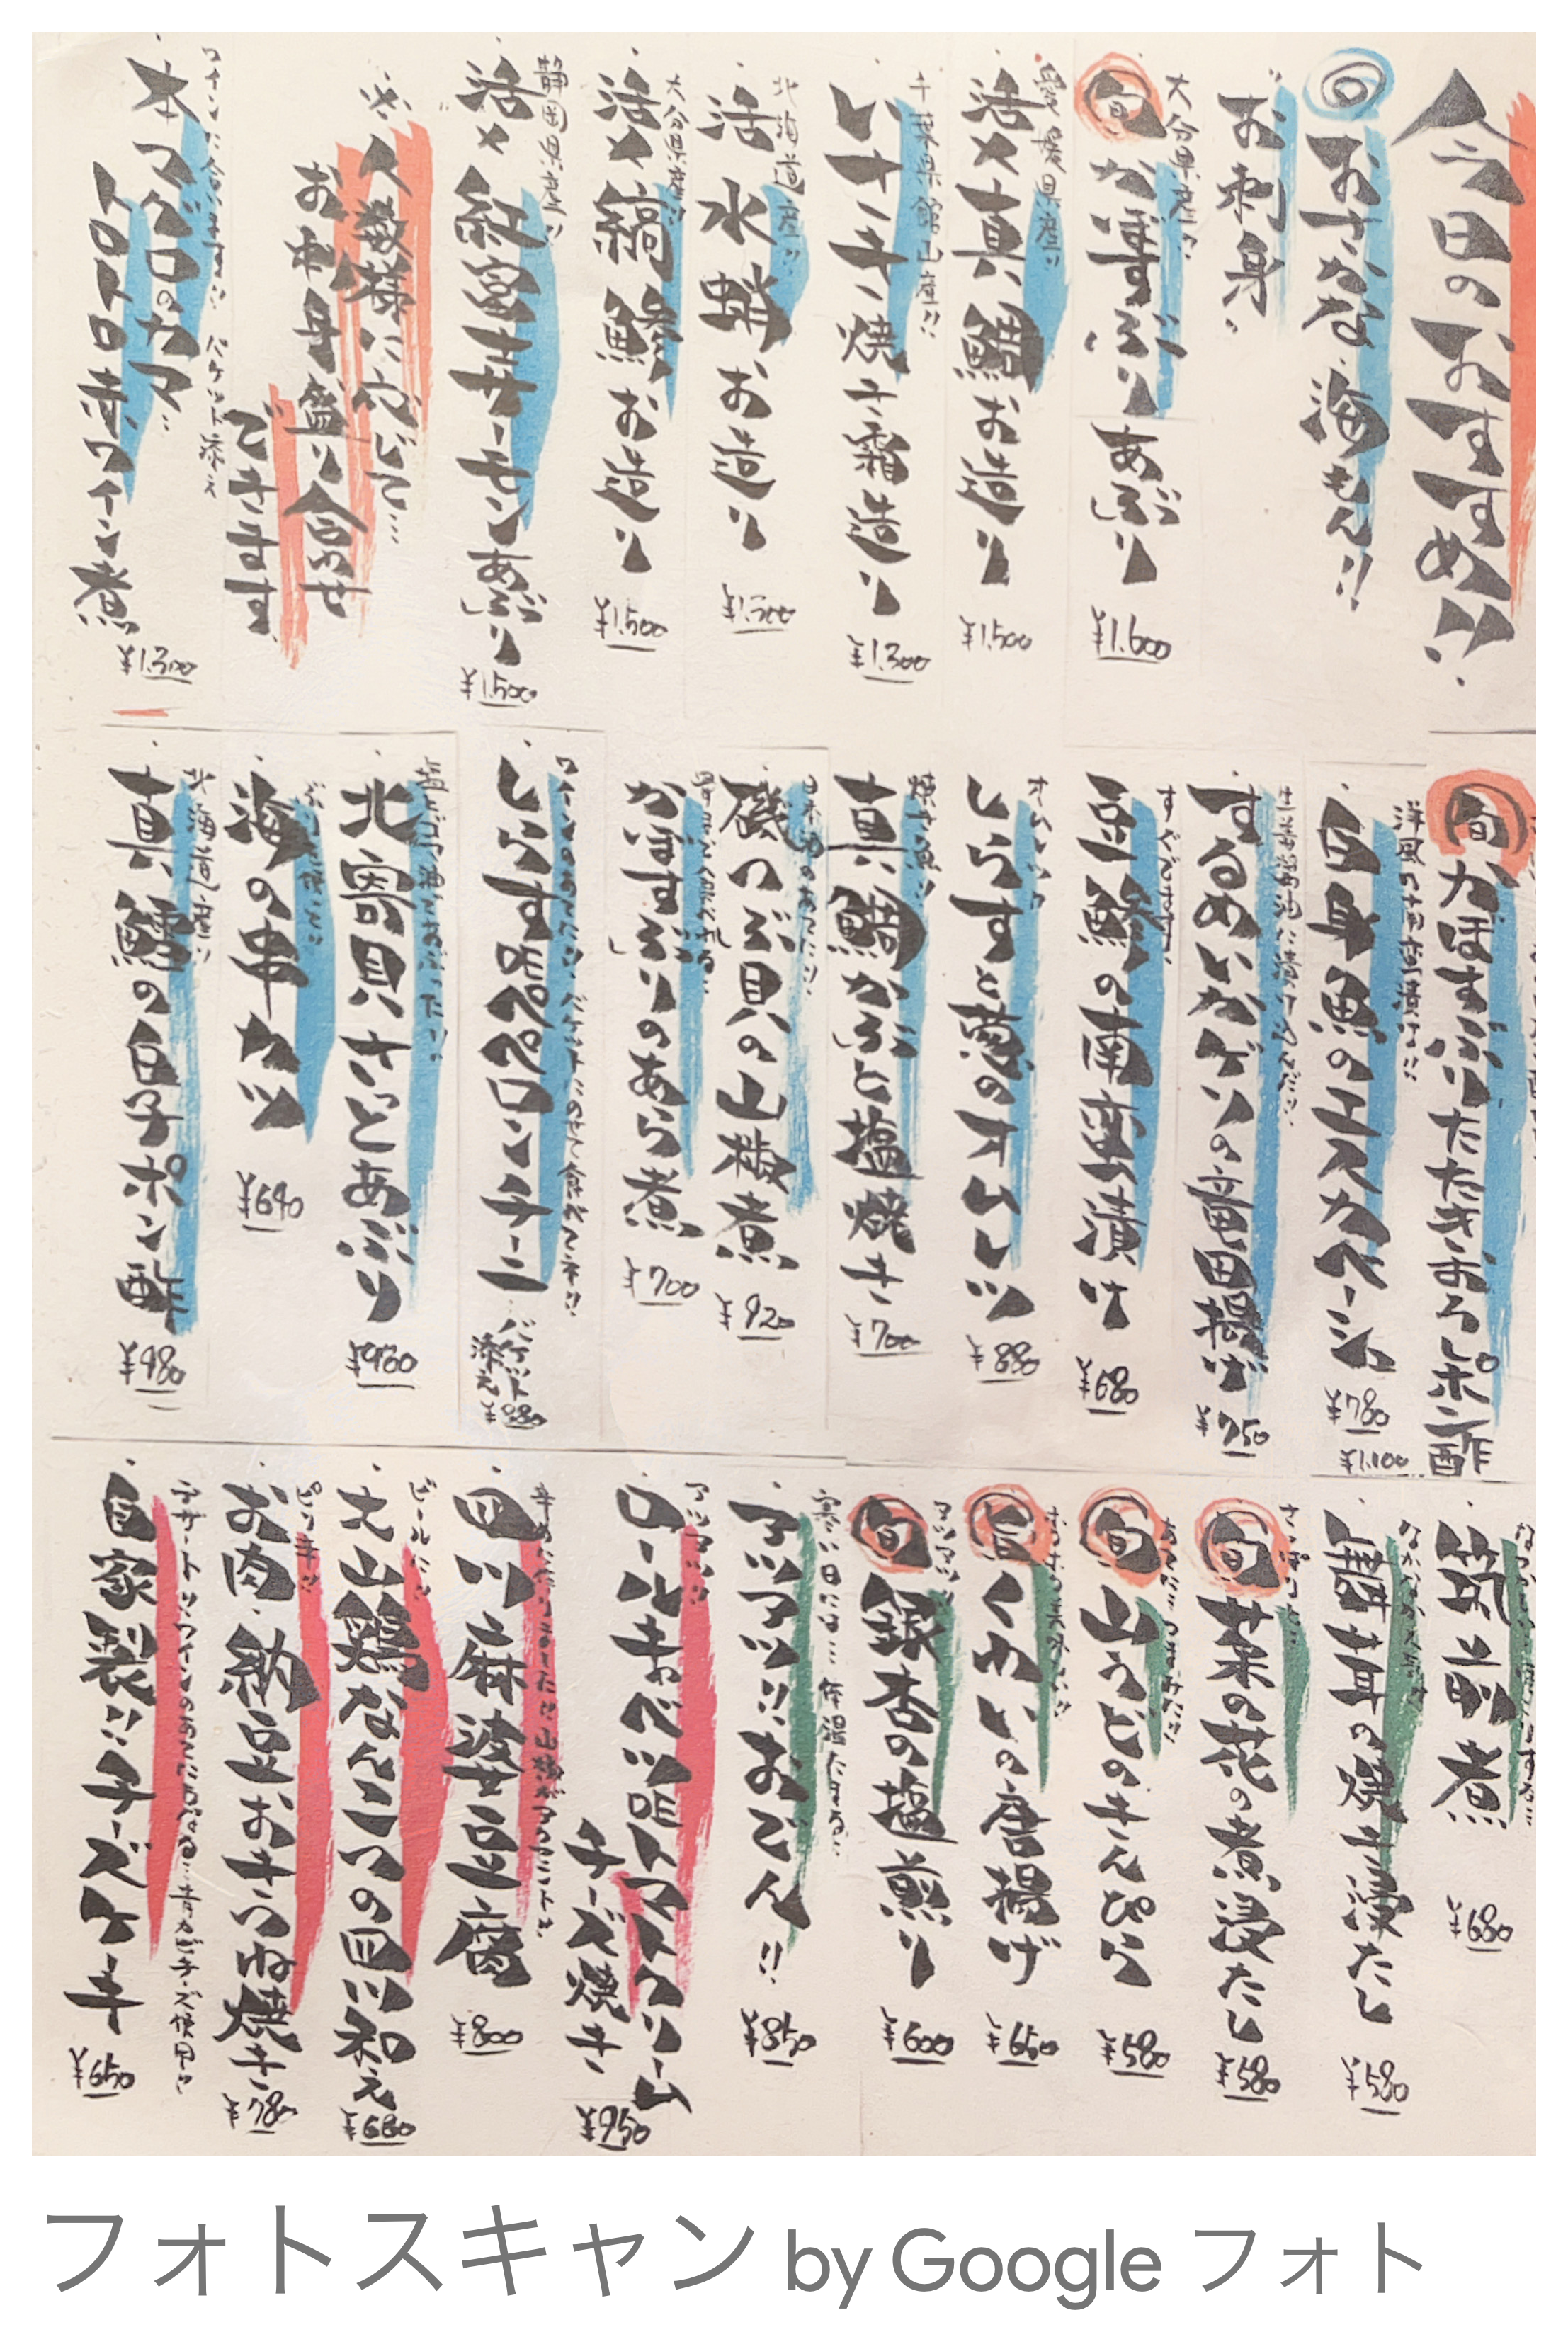 今日のおすすめ!!
おさかな・海もん!!
お刺身
大分県産!!
旬 かぼすぶりあぶり
¥1,600
愛媛県産!!
活〆真鯛お造り
¥1,500
千葉県館山産!!
いサキ焼き霜造り
¥1,300
北海道産!!
活水蛸お造り
大分県産!!
活〆縞鯵お造り
¥1,500
静岡県産!!
活〆紅富士サーモンあぶり
¥1,500
人数様に応じて…
お刺身盛り合わせ
できます
ワインに合います!! バケット添え
本マグロのカマ
トロトロ赤ワイン煮
¥1,300
旬 かぼすぶりたたきおろしポン酢
¥1,100
白身魚のエスカベーシュ
¥780
生姜醤油に漬け込んだ!!
するめいかげその竜田揚げ
¥750
豆鯵の南蛮漬け
¥680
しらすと葱のオムレツ
¥880
焼き魚!!
真鯛かぶと塩焼き
¥700
日本酒のあてに!!
磯つぶ貝の山椒煮
¥920
かぼすぶりのあら煮
¥700
ワインのあてに!! バケットにのせて食べてネ!!
しらすペペロンチーニ
バケット
添え
¥880
北寄貝さっとあぶり
¥980
海の串カツ
¥690
北海道産!!
真鱈の白子ポン酢
¥980
筑前煮
¥680
舞茸の焼き浸たし
¥580
旬 菜の花の煮浸たし
¥580
旬 山うどのきんぴら
¥580
旬 くわいの唐揚げ
¥650
アツアツ!!
旬 銀杏の塩煎り
¥600
アツアツ!!おでん!!
¥850
アツアツ!!
ロールキャベツ トマトクリーム
チーズ焼き
¥950
四川麻婆豆腐
¥800
ビールに!!
大山鶏なんこつの四川和え
¥680
ピリ辛!!
お肉・納豆おキツネ焼き
¥780
デザートにワインのあてにもなる…青カビチーズ使用!!
自家製!!チーズケーキ
¥650
フォトスキャン by Google フォト